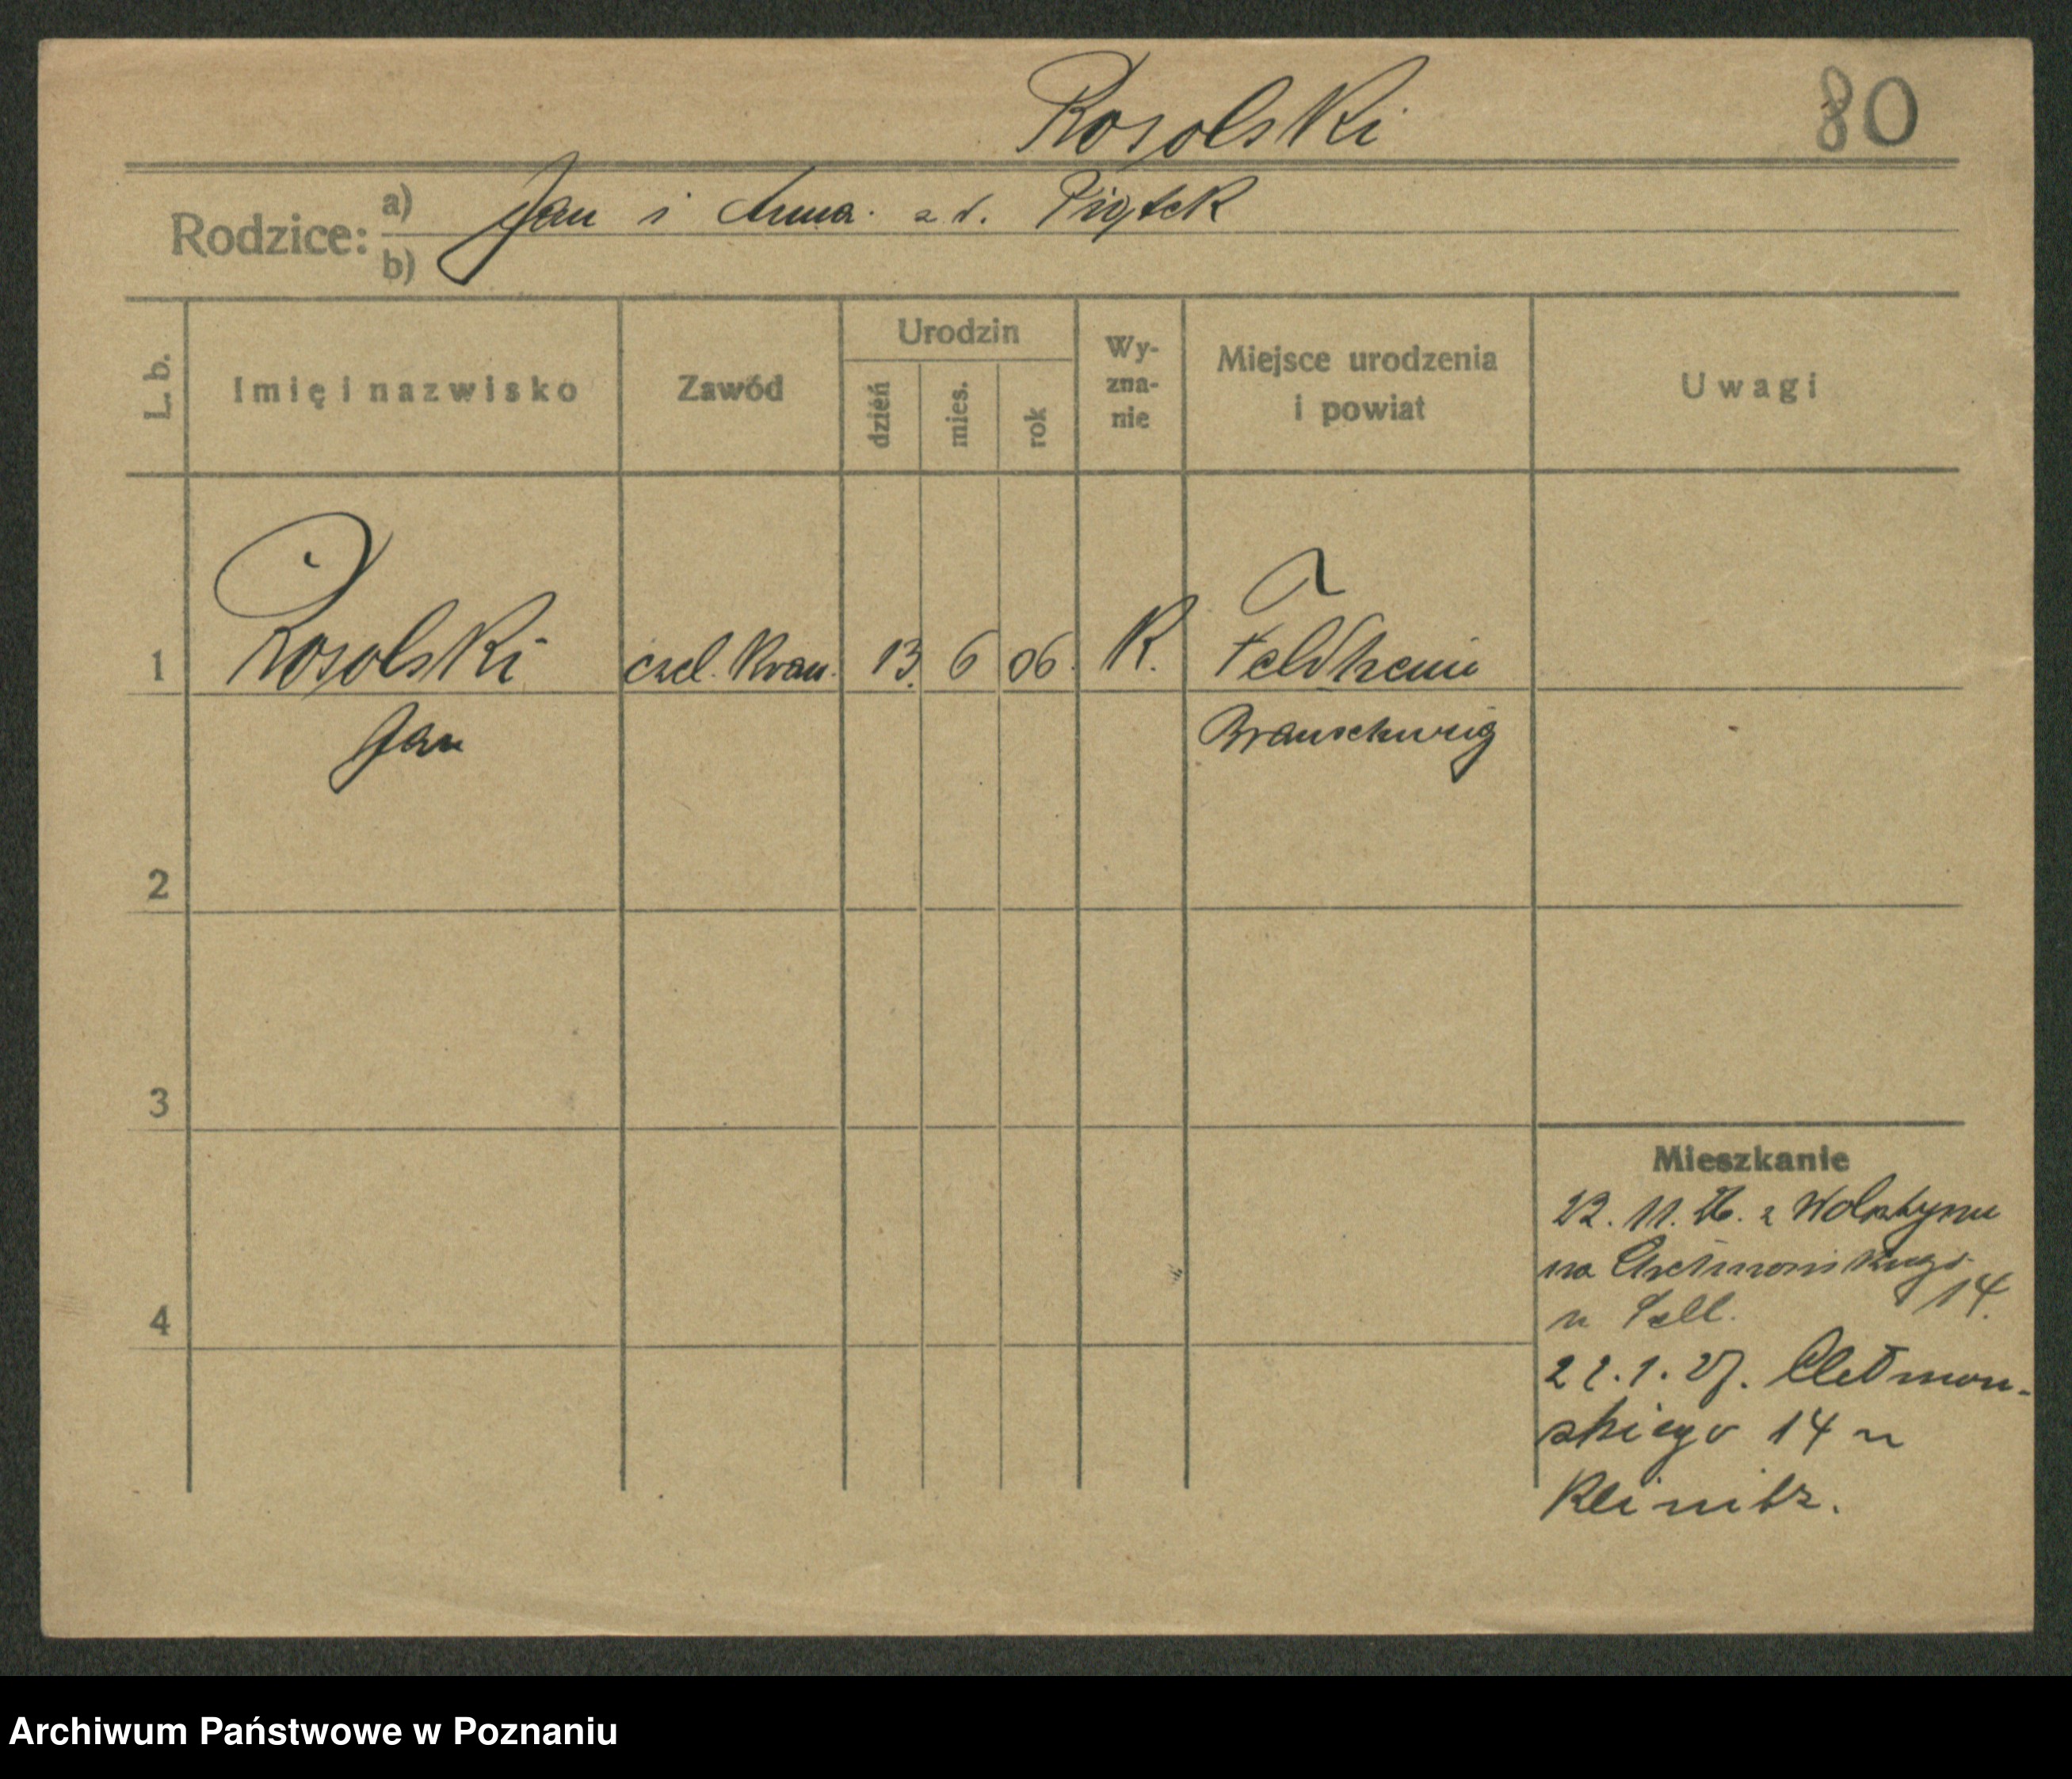 Rosolski
80
Rodzice:
a) Jan i Anna z d. Piątek
b)
L. b.
Imię i nazwisko
Zawód
Urodzin
dzień
mies.
rok
Wy-
zna-
nie
Miejsce urodzenia
i powiat
Uwagi
1
Rosolski
czel. Kraw.
13.
6
06.
K.
Feldheim
Jan
Braunschweig
2
3
4
Mieszkanie
22. 11. 26. z Wolsztynu
na
14.
u
22. 1. 27. Chełmoń-
skiego 14 u
Reinitz.
Archiwum Państwowe w Poznaniu